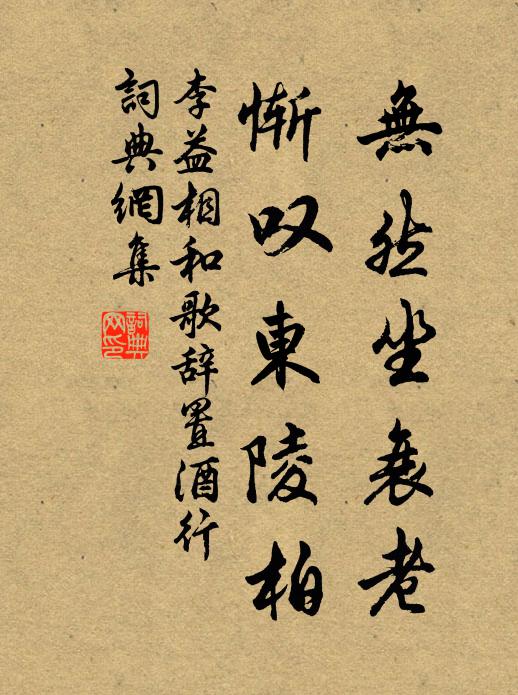 無然坐衰老
慚叹東陵柏
李益相和歌辞置酒行
詞典網集
詞典
网印